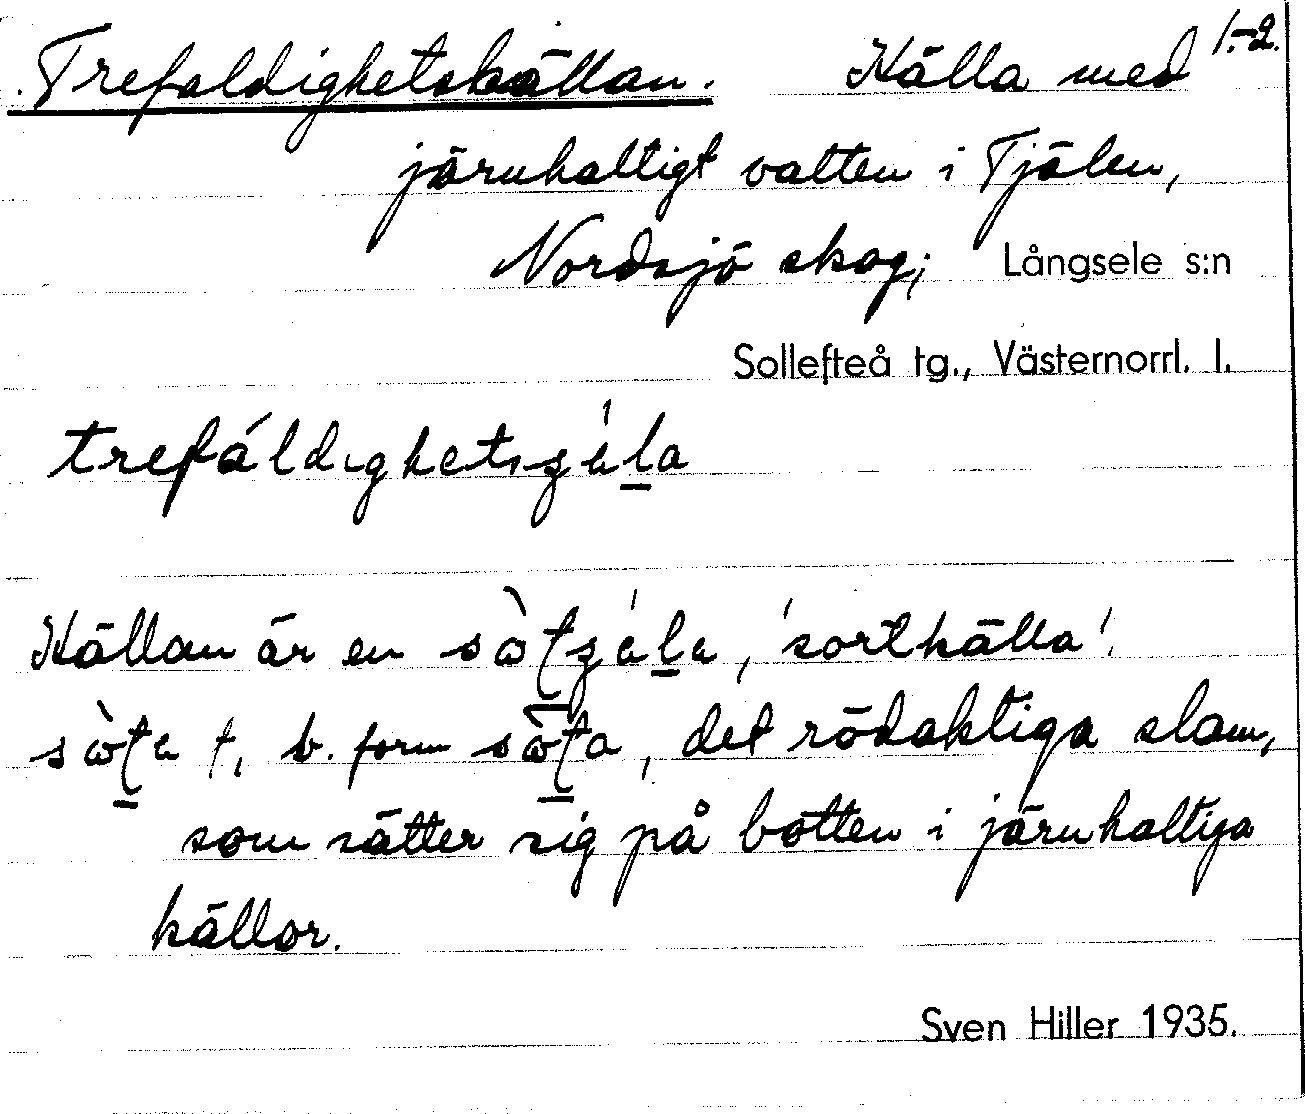 Trefaldighetskällan. Källa med 1.-2.
järnhaltigt vatten i Tjälen,
Nordsjö skog; Långsele s:n
Sollefteå tg., Västernorrl. l.
trefáldıghetsʓäla
Källan är en sòtʓäla, 'sortkälla'.
sòta f, b. form sòta, det rödaktiga slam,
som sätter sig på botten i järnhaltiga
källor.
Sven Hiller 1935.